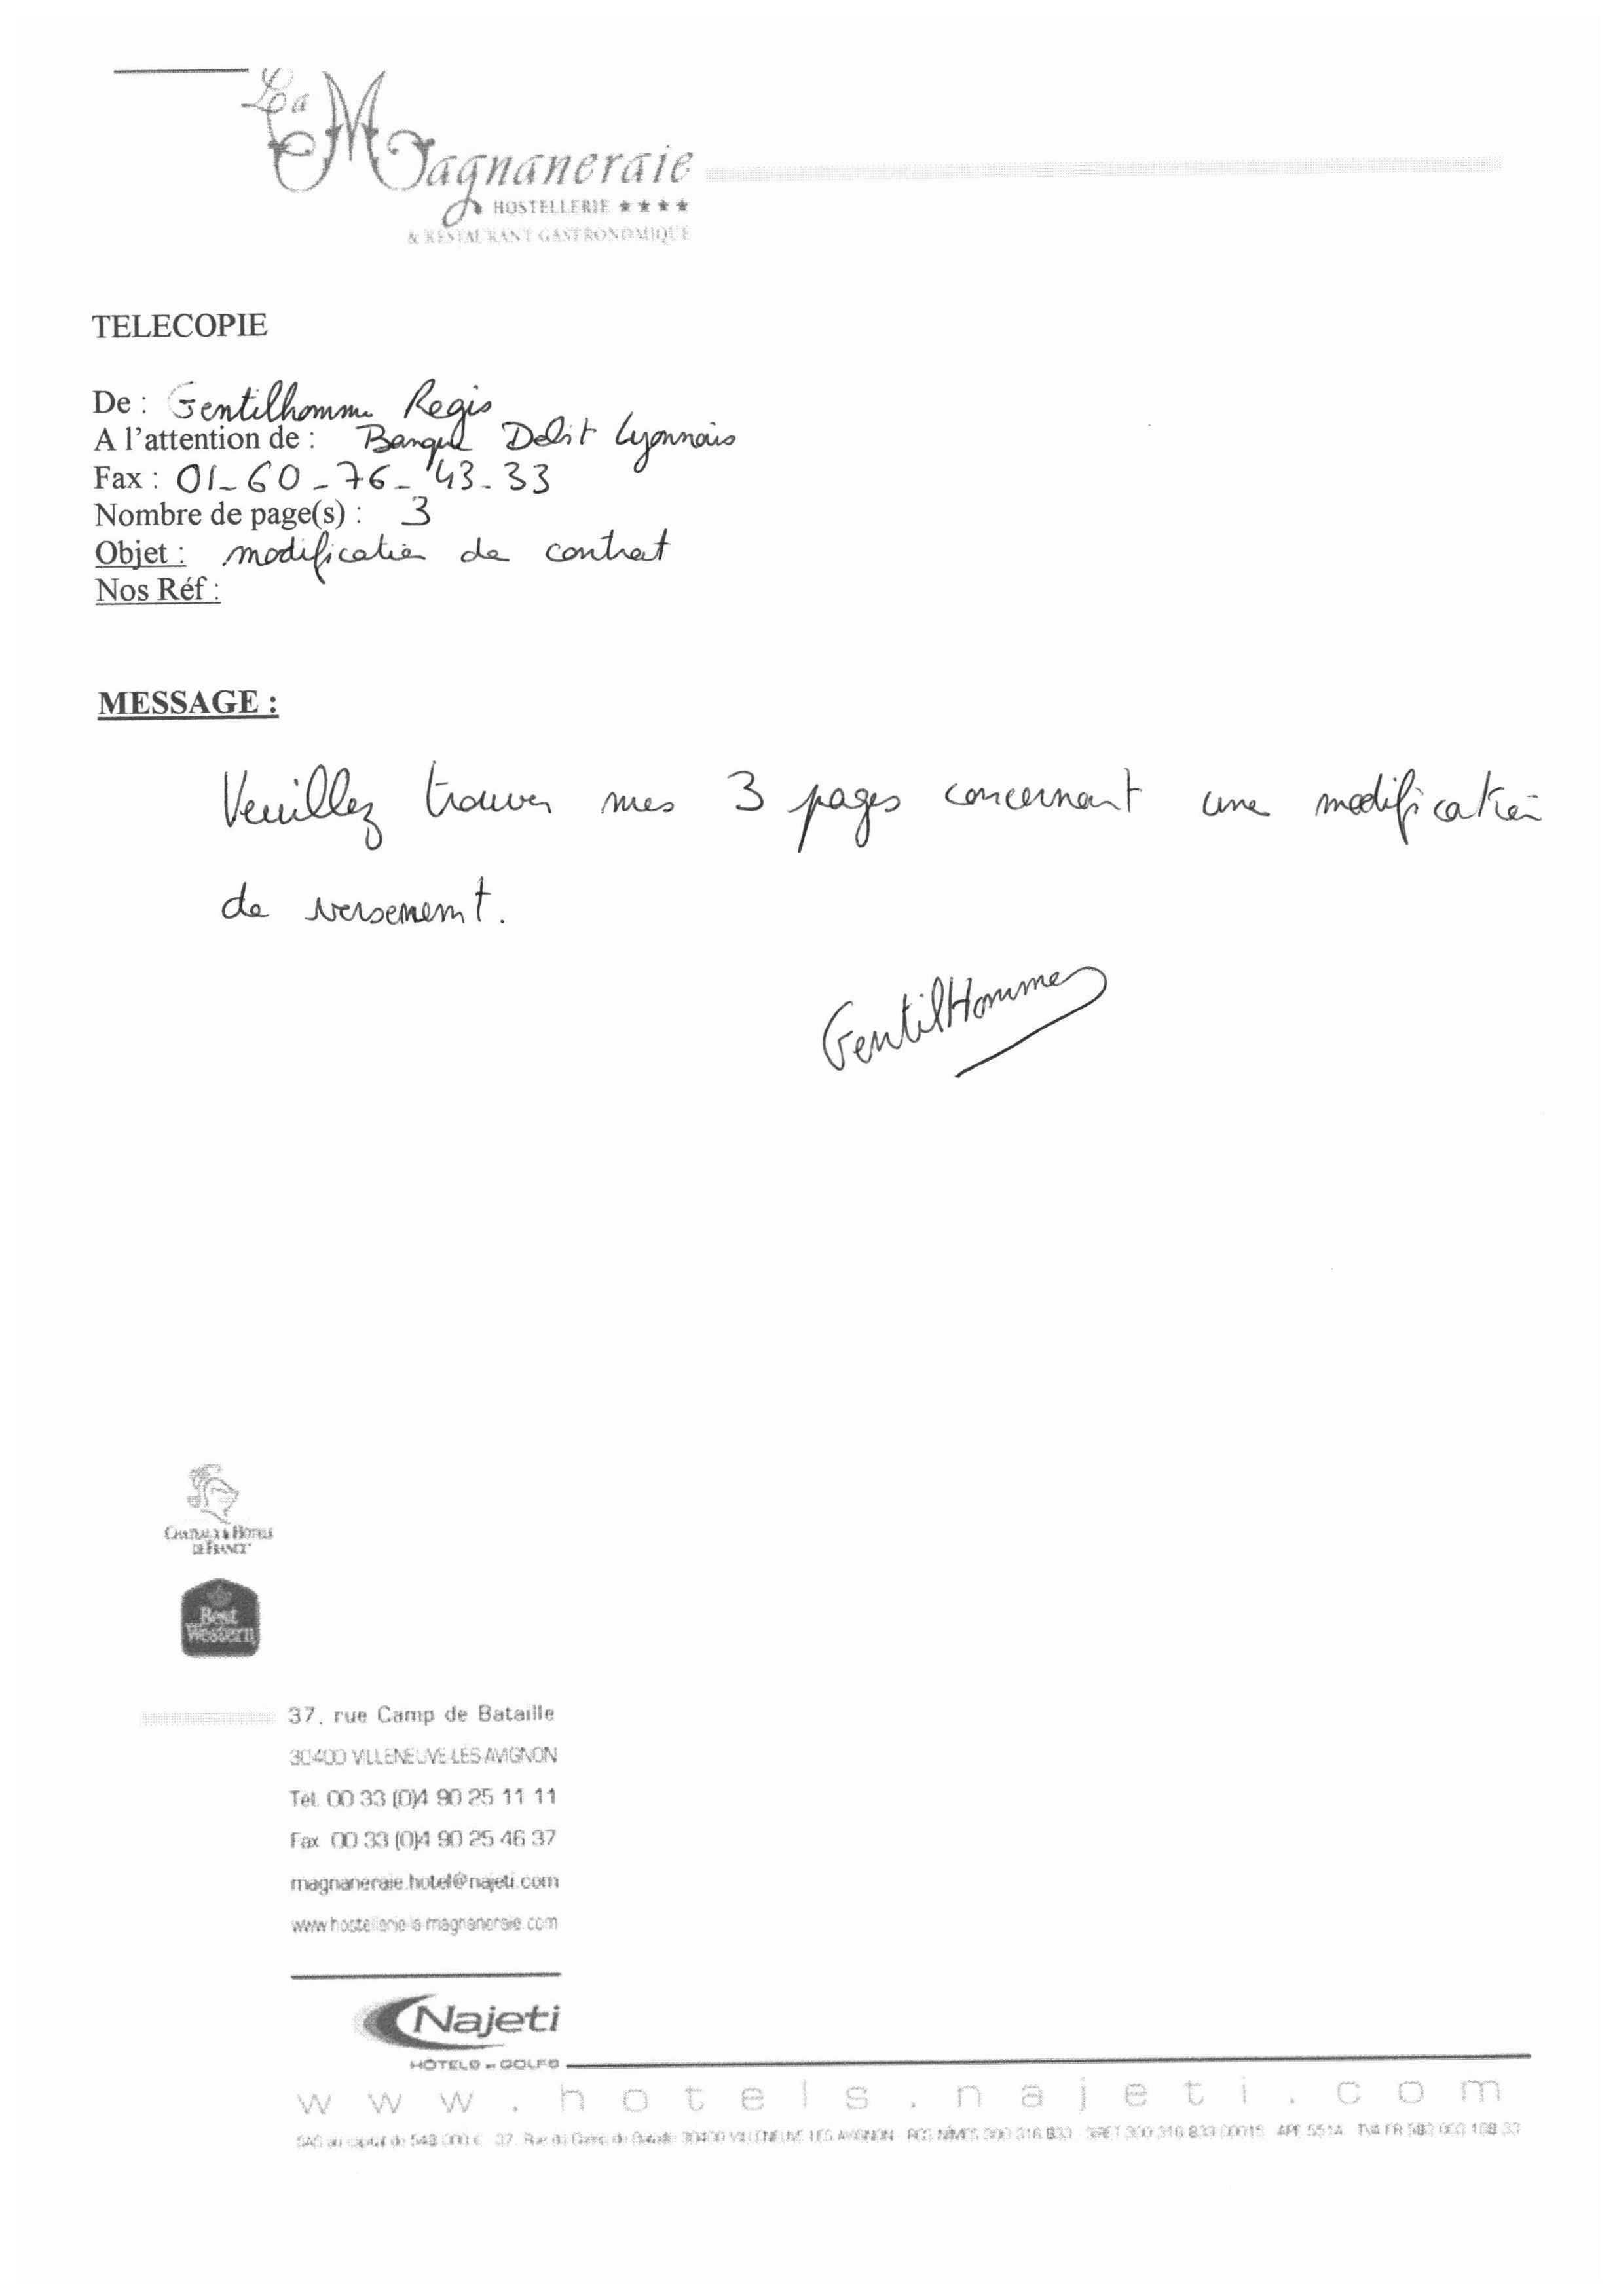 La Magnaneraie
HOSTELLERIE ★★★★
& RESTAURANT GASTRONOMIQUE
TELECOPIE
De : Gentilhomme Regis
A l'attention de : Banque Debit Lyonnais
Fax : 01-60-76-43-33
Nombre de page(s) : 3
Objet : modification de contrat
Nos Réf :
MESSAGE :
Veuillez trouver mes 3 pages concernant une modification
de versement.
GentilHomme
CHATEAUX & HOTELS
DE FRANCE
Best
Western
37, rue Camp de Bataille
30400 VILLENEUVE-LES-AVIGNON
Tél. 00 33 (0)4 90 25 11 11
Fax 00 33 (0)4 90 25 46 37
magnaneraie.hotel@najeti.com
www.hostellerie-la-magnaneraie.com
Najeti
HÔTELS & GOLFS
www.hotels.najeti.com
SAS au capital de 548 000 € 37, Rue du Camp de Bataille 30400 VILLENEUVE LES AVIGNON RCS NÎMES 300 316 833 SIRET 300 316 833 00015 APE 551A TVA FR